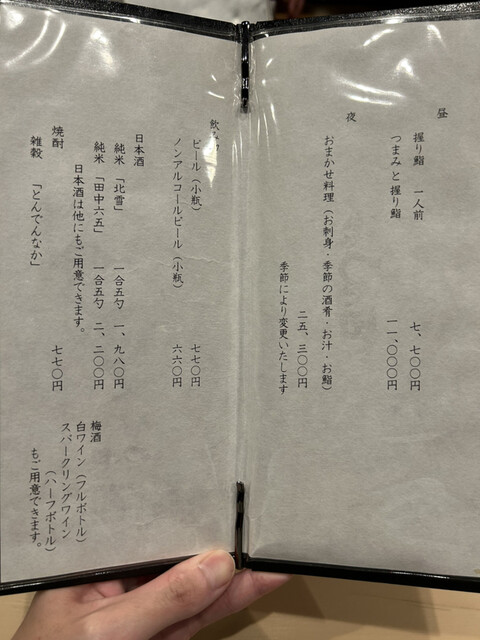 昼
握り鮨 一人前 七、七〇〇円
つまみと握り鮨 一一、〇〇〇円
夜
おまかせ料理（お刺身・季節の酒肴・お汁・お鮨）
二五、三〇〇円
季節により変更いたします
飲み物
ビール（小瓶） 七七〇円
ノンアルコールビール（小瓶） 六六〇円
日本酒
純米「北雪」 一合五勺 一、九八〇円
純米「田中六五」 一合五勺 二、二〇〇円
日本酒は他にもご用意できます。
焼酎 七七〇円
雑穀 「とんでんなか」
梅酒
白ワイン（フルボトル）
スパークリングワイン
（ハーフボトル）
もご用意できます。